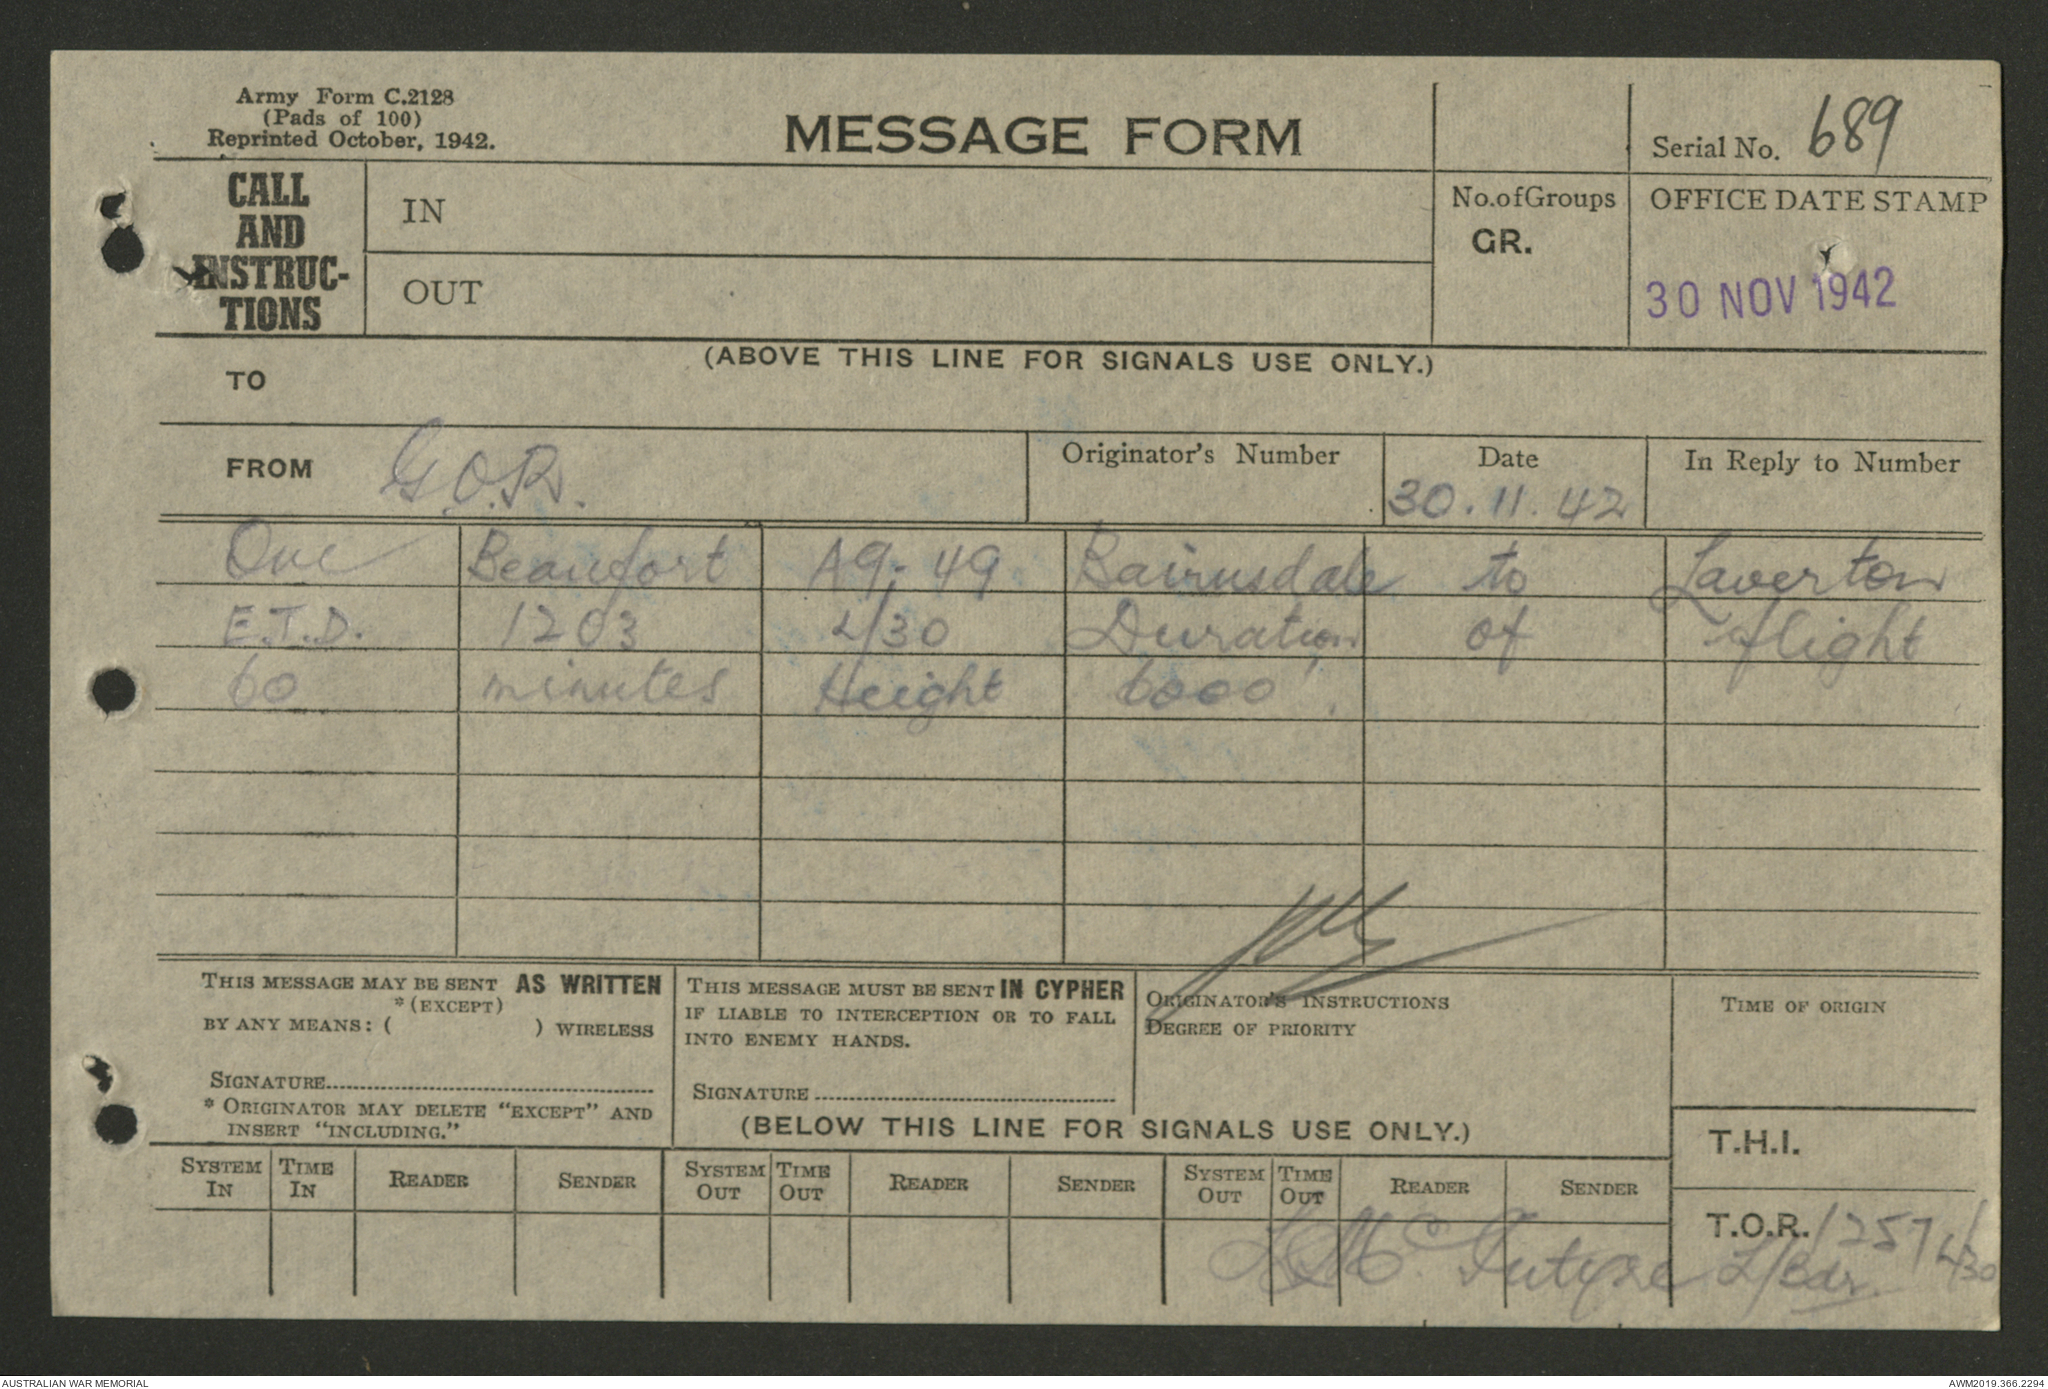 Army Form C.2128
(Pads of 100)
Reprinted October, 1942.
MESSAGE FORM
Serial No. 689
CALL
AND
INSTRUC-
TIONS
IN
OUT
No. of Groups
GR.
OFFICE DATE STAMP
30 NOV 1942
(ABOVE THIS LINE FOR SIGNALS USE ONLY.)
TO
FROM G.O.R.
Originator's Number
Date
30.11.42
In Reply to Number
One Beaufort A9-49 Bairnsdale to Laverton
E.T.D. 1203 L/30 Duration of flight
60 minutes Height 6000'.
THIS MESSAGE MAY BE SENT AS WRITTEN
*(EXCEPT)
BY ANY MEANS: ( ) WIRELESS
SIGNATURE
* ORIGINATOR MAY DELETE "EXCEPT" AND
INSERT "INCLUDING."
THIS MESSAGE MUST BE SENT IN CYPHER
IF LIABLE TO INTERCEPTION OR TO FALL
INTO ENEMY HANDS.
SIGNATURE
ORIGINATOR'S INSTRUCTIONS
DEGREE OF PRIORITY
TIME OF ORIGIN
(BELOW THIS LINE FOR SIGNALS USE ONLY.)
T.H.I.
SYSTEM IN TIME IN READER SENDER SYSTEM OUT TIME OUT READER SENDER SYSTEM OUT TIME OUT READER SENDER
T.O.R. 1257 L/30
L/Bdr.
AUSTRALIAN WAR MEMORIAL
AWM2019.366.2294